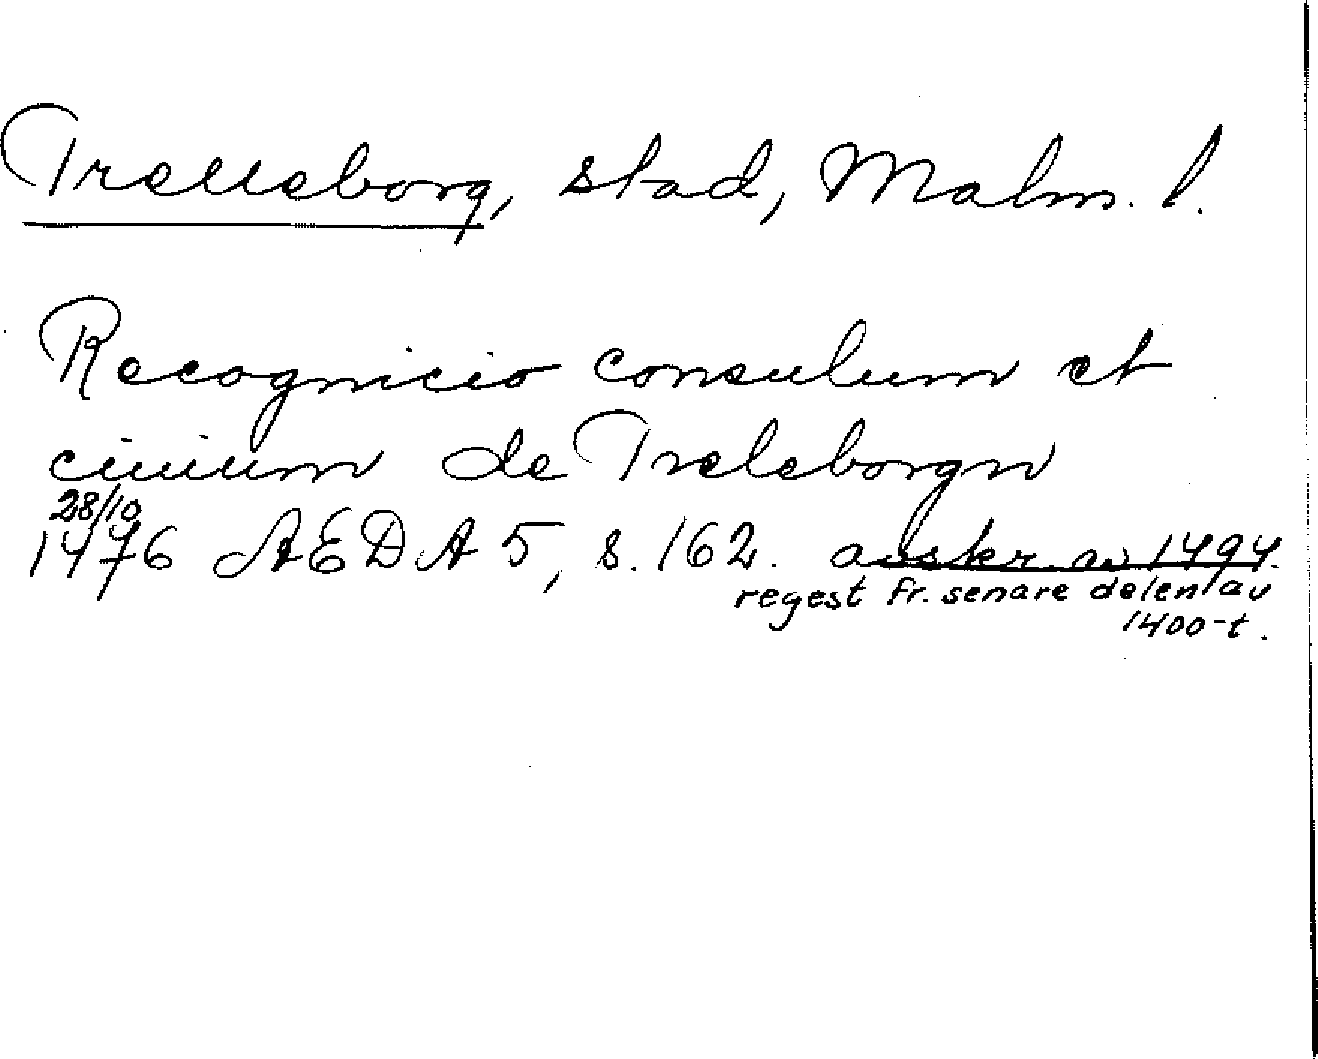 Trelleborg, stad, Malm. l.
Recognicio consulum et
ciuium de Treleborgn
28/10
1476 AEDA 5, s. 162. avskr. 1494.
regest fr. senare delen av
1400-t.